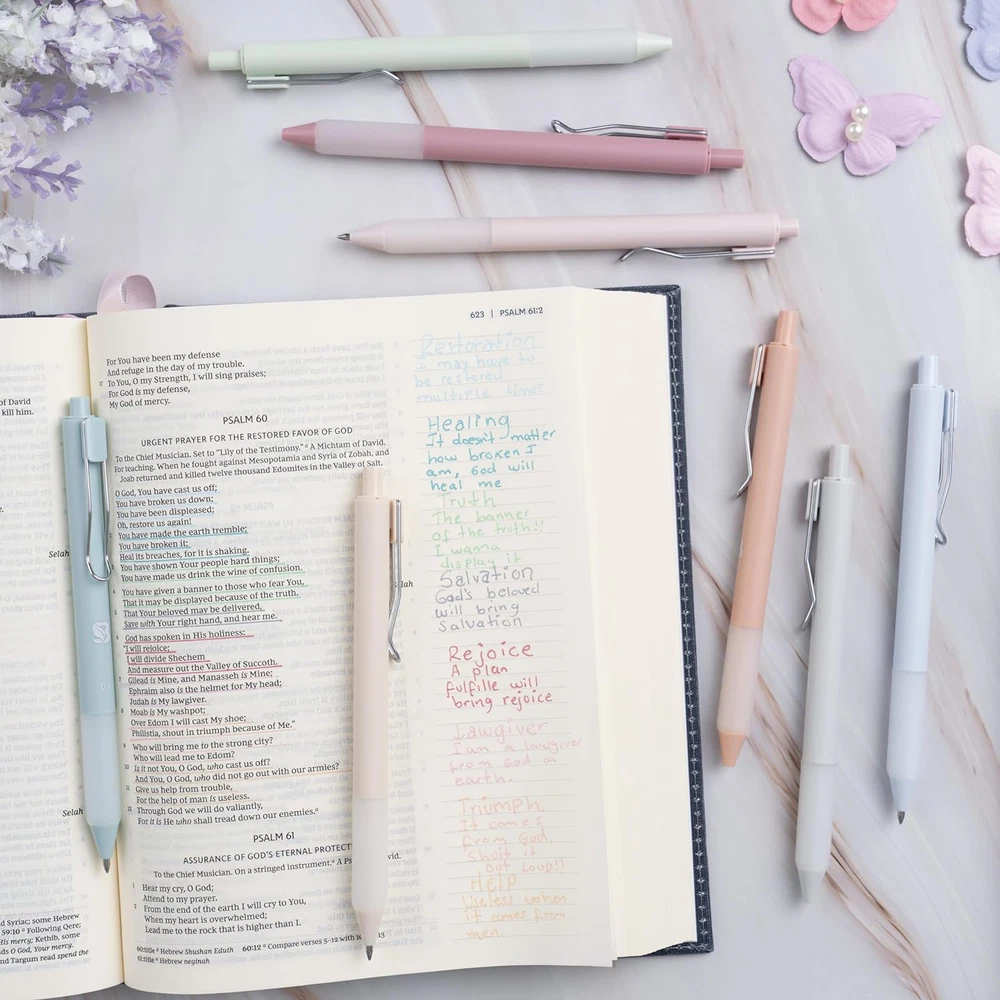 of David
kill him.
Selah
Selah
d Syriac; some Hebrew
59:10 ª Following Qere;
His mercy; Kethib, some
ds O God, Your mercy.
nd Targum read spend the
623 | PSALM 61:2
For You have been my defense
And refuge in the day of my trouble.
17 To You, O my Strength, I will sing praises;
For God is my defense,
My God of mercy.
PSALM 60
URGENT PRAYER FOR THE RESTORED FAVOR OF GOD
To the Chief Musician. Set to "Lily of the Testimony." ª A Michtam of David.
For teaching. When he fought against Mesopotamia and Syria of Zobah, and
Joab returned and killed twelve thousand Edomites in the Valley of Salt.
O God, You have cast us off;
You have broken us down;
You have been displeased;
Oh, restore us again!
2 You have made the earth tremble;
You have broken it;
Heal its breaches, for it is shaking.
3 You have shown Your people hard things;
You have made us drink the wine of confusion.
4 You have given a banner to those who fear You,
That it may be displayed because of the truth.
lah
5 That Your beloved may be delivered,
Save with Your right hand, and hear me.
6 God has spoken in His holiness:
"I will rejoice;
I will divide Shechem
And measure out the Valley of Succoth.
7 Gilead is Mine, and Manasseh is Mine;
Ephraim also is the helmet for My head;
Judah is My lawgiver.
8 Moab is My washpot;
Over Edom I will cast My shoe;
Philistia, shout in triumph because of Me."
9 Who will bring me to the strong city?
Who will lead me to Edom?
10 Is it not You, O God, who cast us off?
And You, O God, who did not go out with our armies?
11 Give us help from trouble,
For the help of man is useless.
12 Through God we will do valiantly,
For it is He who shall tread down our enemies.ª
PSALM 61
ASSURANCE OF GOD'S ETERNAL PROTECT
To the Chief Musician. On a stringed instrument.ª A Ps vid.
1 Hear my cry, O God;
Attend to my prayer.
2 From the end of the earth I will cry to You,
When my heart is overwhelmed;
Lead me to the rock that is higher than I.
60:title ª Hebrew Shushan Eduth 60:12 ª Compare verses 5–12 with 13
61:title ª Hebrew neginah
Restoration
I may have to
be restored
multiple times
Healing
It doesn't matter
how broken I
am, God will
heal me
Truth
The banner
of the truth!!
I wanna
display it
Salvation
God's beloved
will bring
Salvation
Rejoice
A plan
fulfille will
bring rejoice
Lawgiver
I am a lawgiver
from God on
earth.
Triumph
It comes
from God.
Shout it
Out Loup!!
HELP
Useless when
it comes from
men.